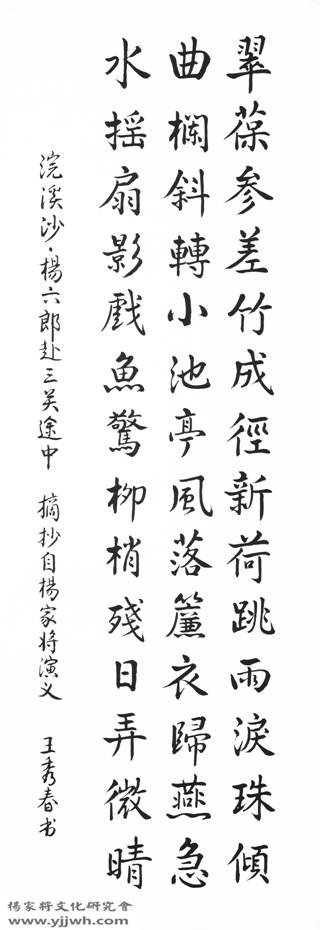 翠葆参差竹成徑新荷跳雨淚珠傾
曲欄斜轉小池亭風落簾衣歸燕急
水搖扇影戲魚驚柳梢殘日弄微晴
浣溪沙·楊六郎赴三关途中 摘抄自楊家将演义 王秀春书
楊家將文化研究會
www.yjjwh.com